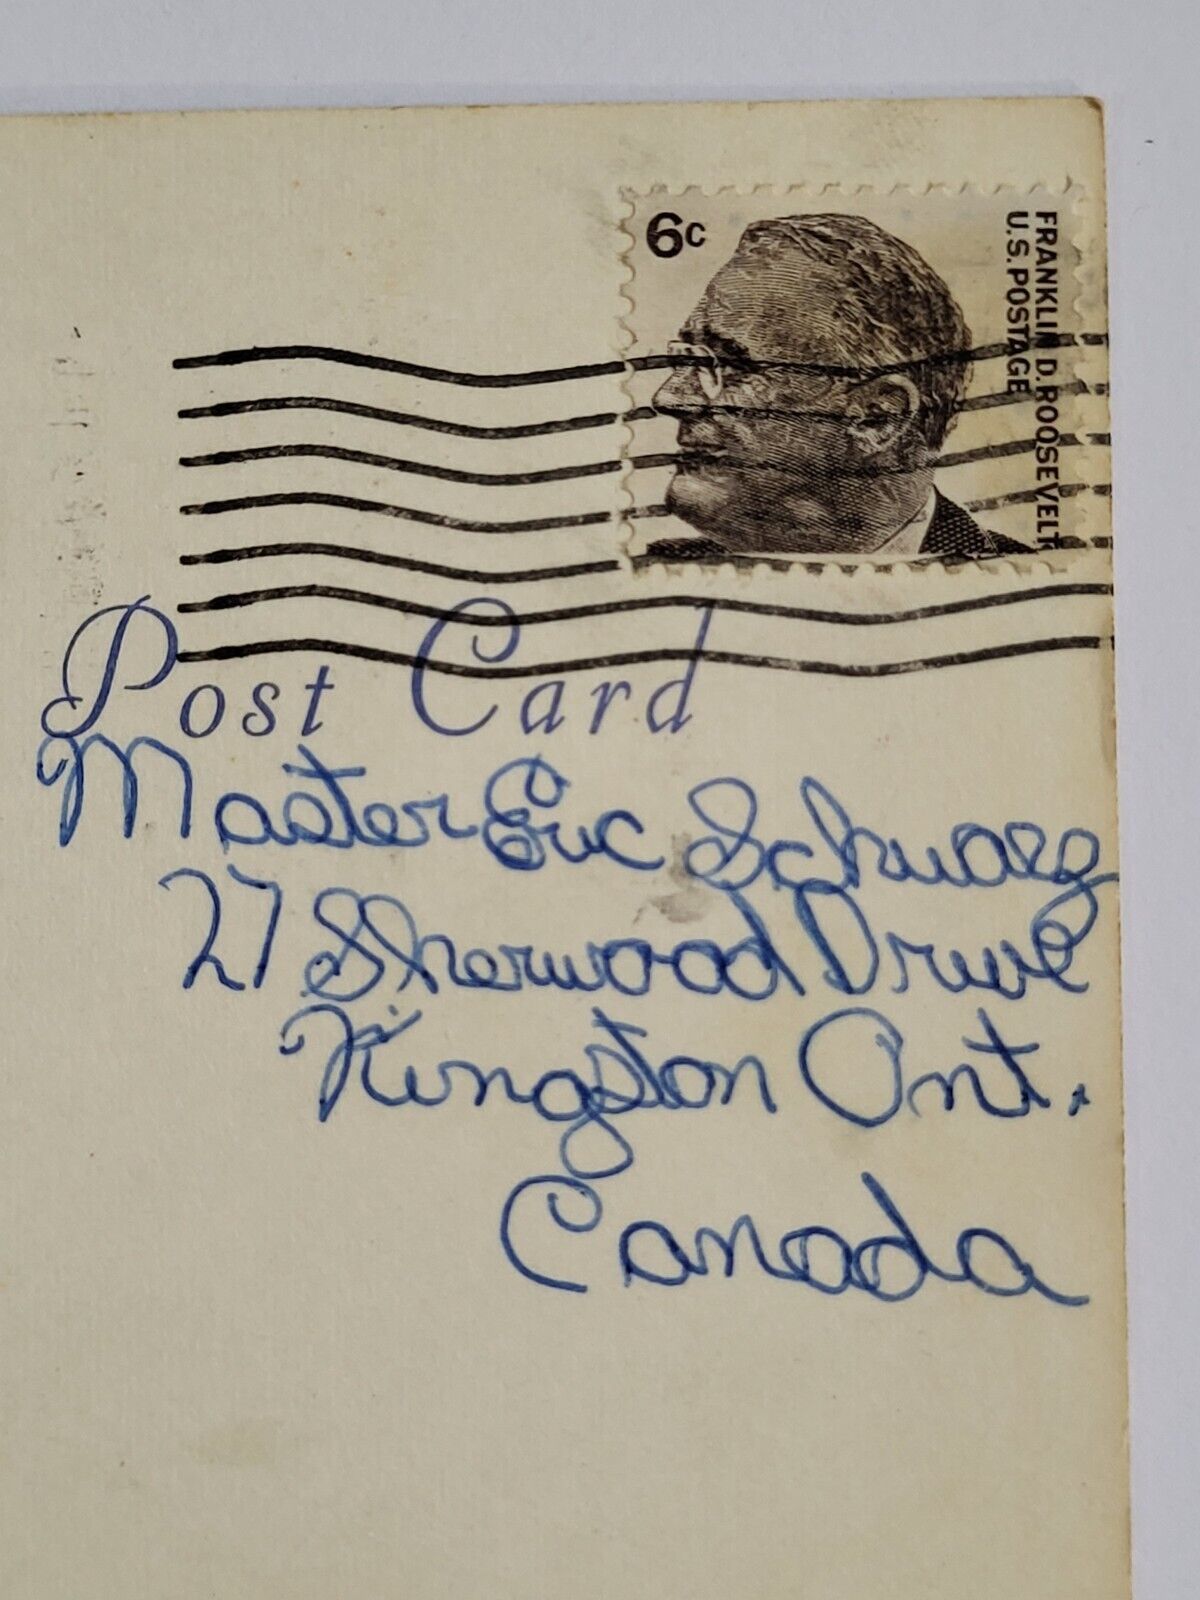 6c
FRANKLIN D. ROOSEVELT
U.S. POSTAGE
Post Card
Master Eric Schwarz
27 Sherwood Drive
Kingston Ont.
Canada